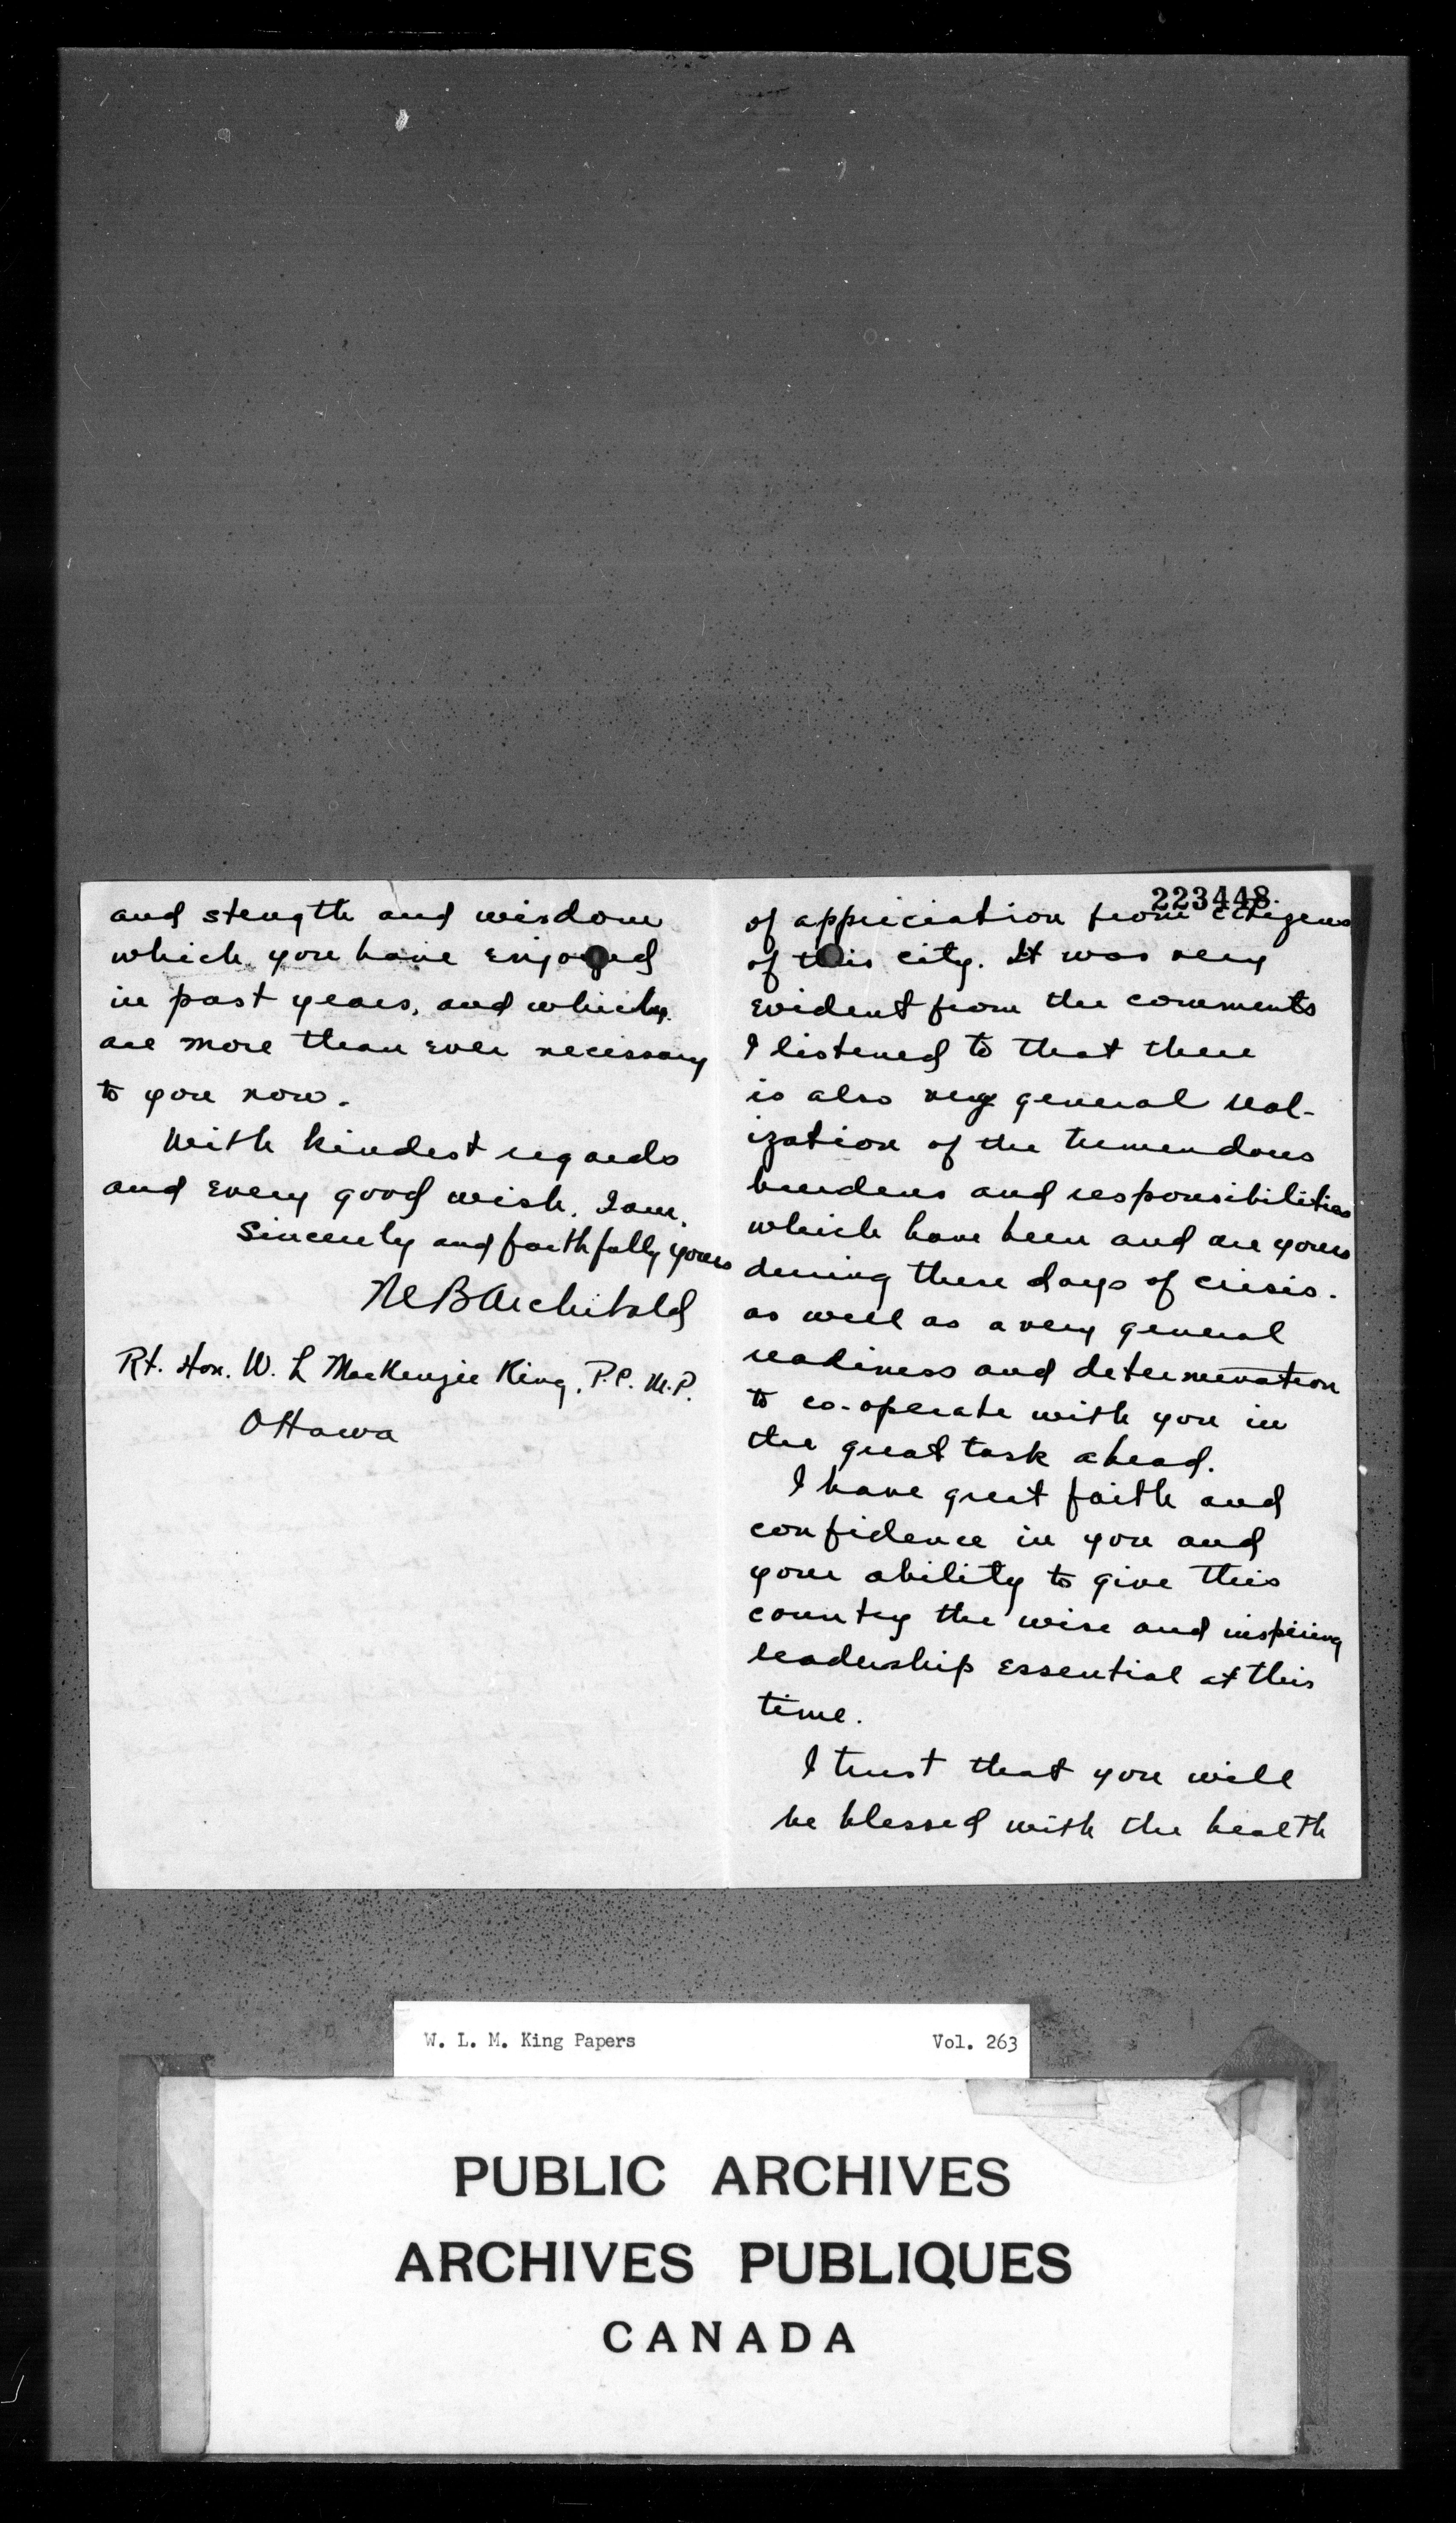 223448
of appreciation from citizens
of this city. It was very
evident from the comments
I listened to that there
is also very general real-
ization of the tremendous
burdens and responsibilities
which have been and are yours
during these days of crisis.
as well as a very general
readiness and determination
to co-operate with you in
the great task ahead.
I have great faith and
confidence in you and
your ability to give this
country the wise and inspiring
leadership essential at this
time.
I trust that you will
be blessed with the health
and stength and wisdom
which you have enjoyed
in past years, and which
are more than ever necessary
to you now.
With kindest regards
and every good wish. I am.
Sincerely and faithfully yours
B Archibald
Rt. Hon. W. L MacKenzie King, P.C. M.P.
Ottawa
W. L. M. King Papers Vol. 263
PUBLIC ARCHIVES
ARCHIVES PUBLIQUES
CANADA